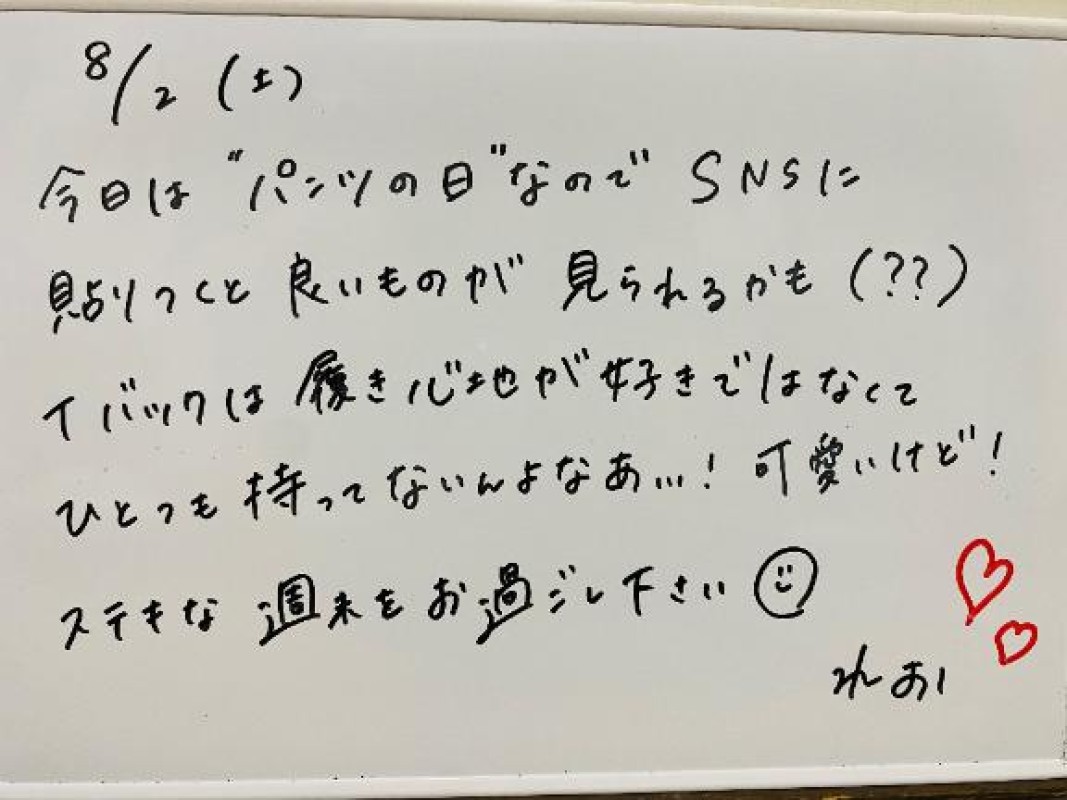 8/2 (土)
今日は"パンツの日"なので SNSに
貼りつくと 良いものが 見られるかも (??)
Tバックは 履き心地が好きではなくて
ひとつも 持ってないんよなあ...! 可愛いけど!
ステキな 週末をお過ごし下さい
れあい